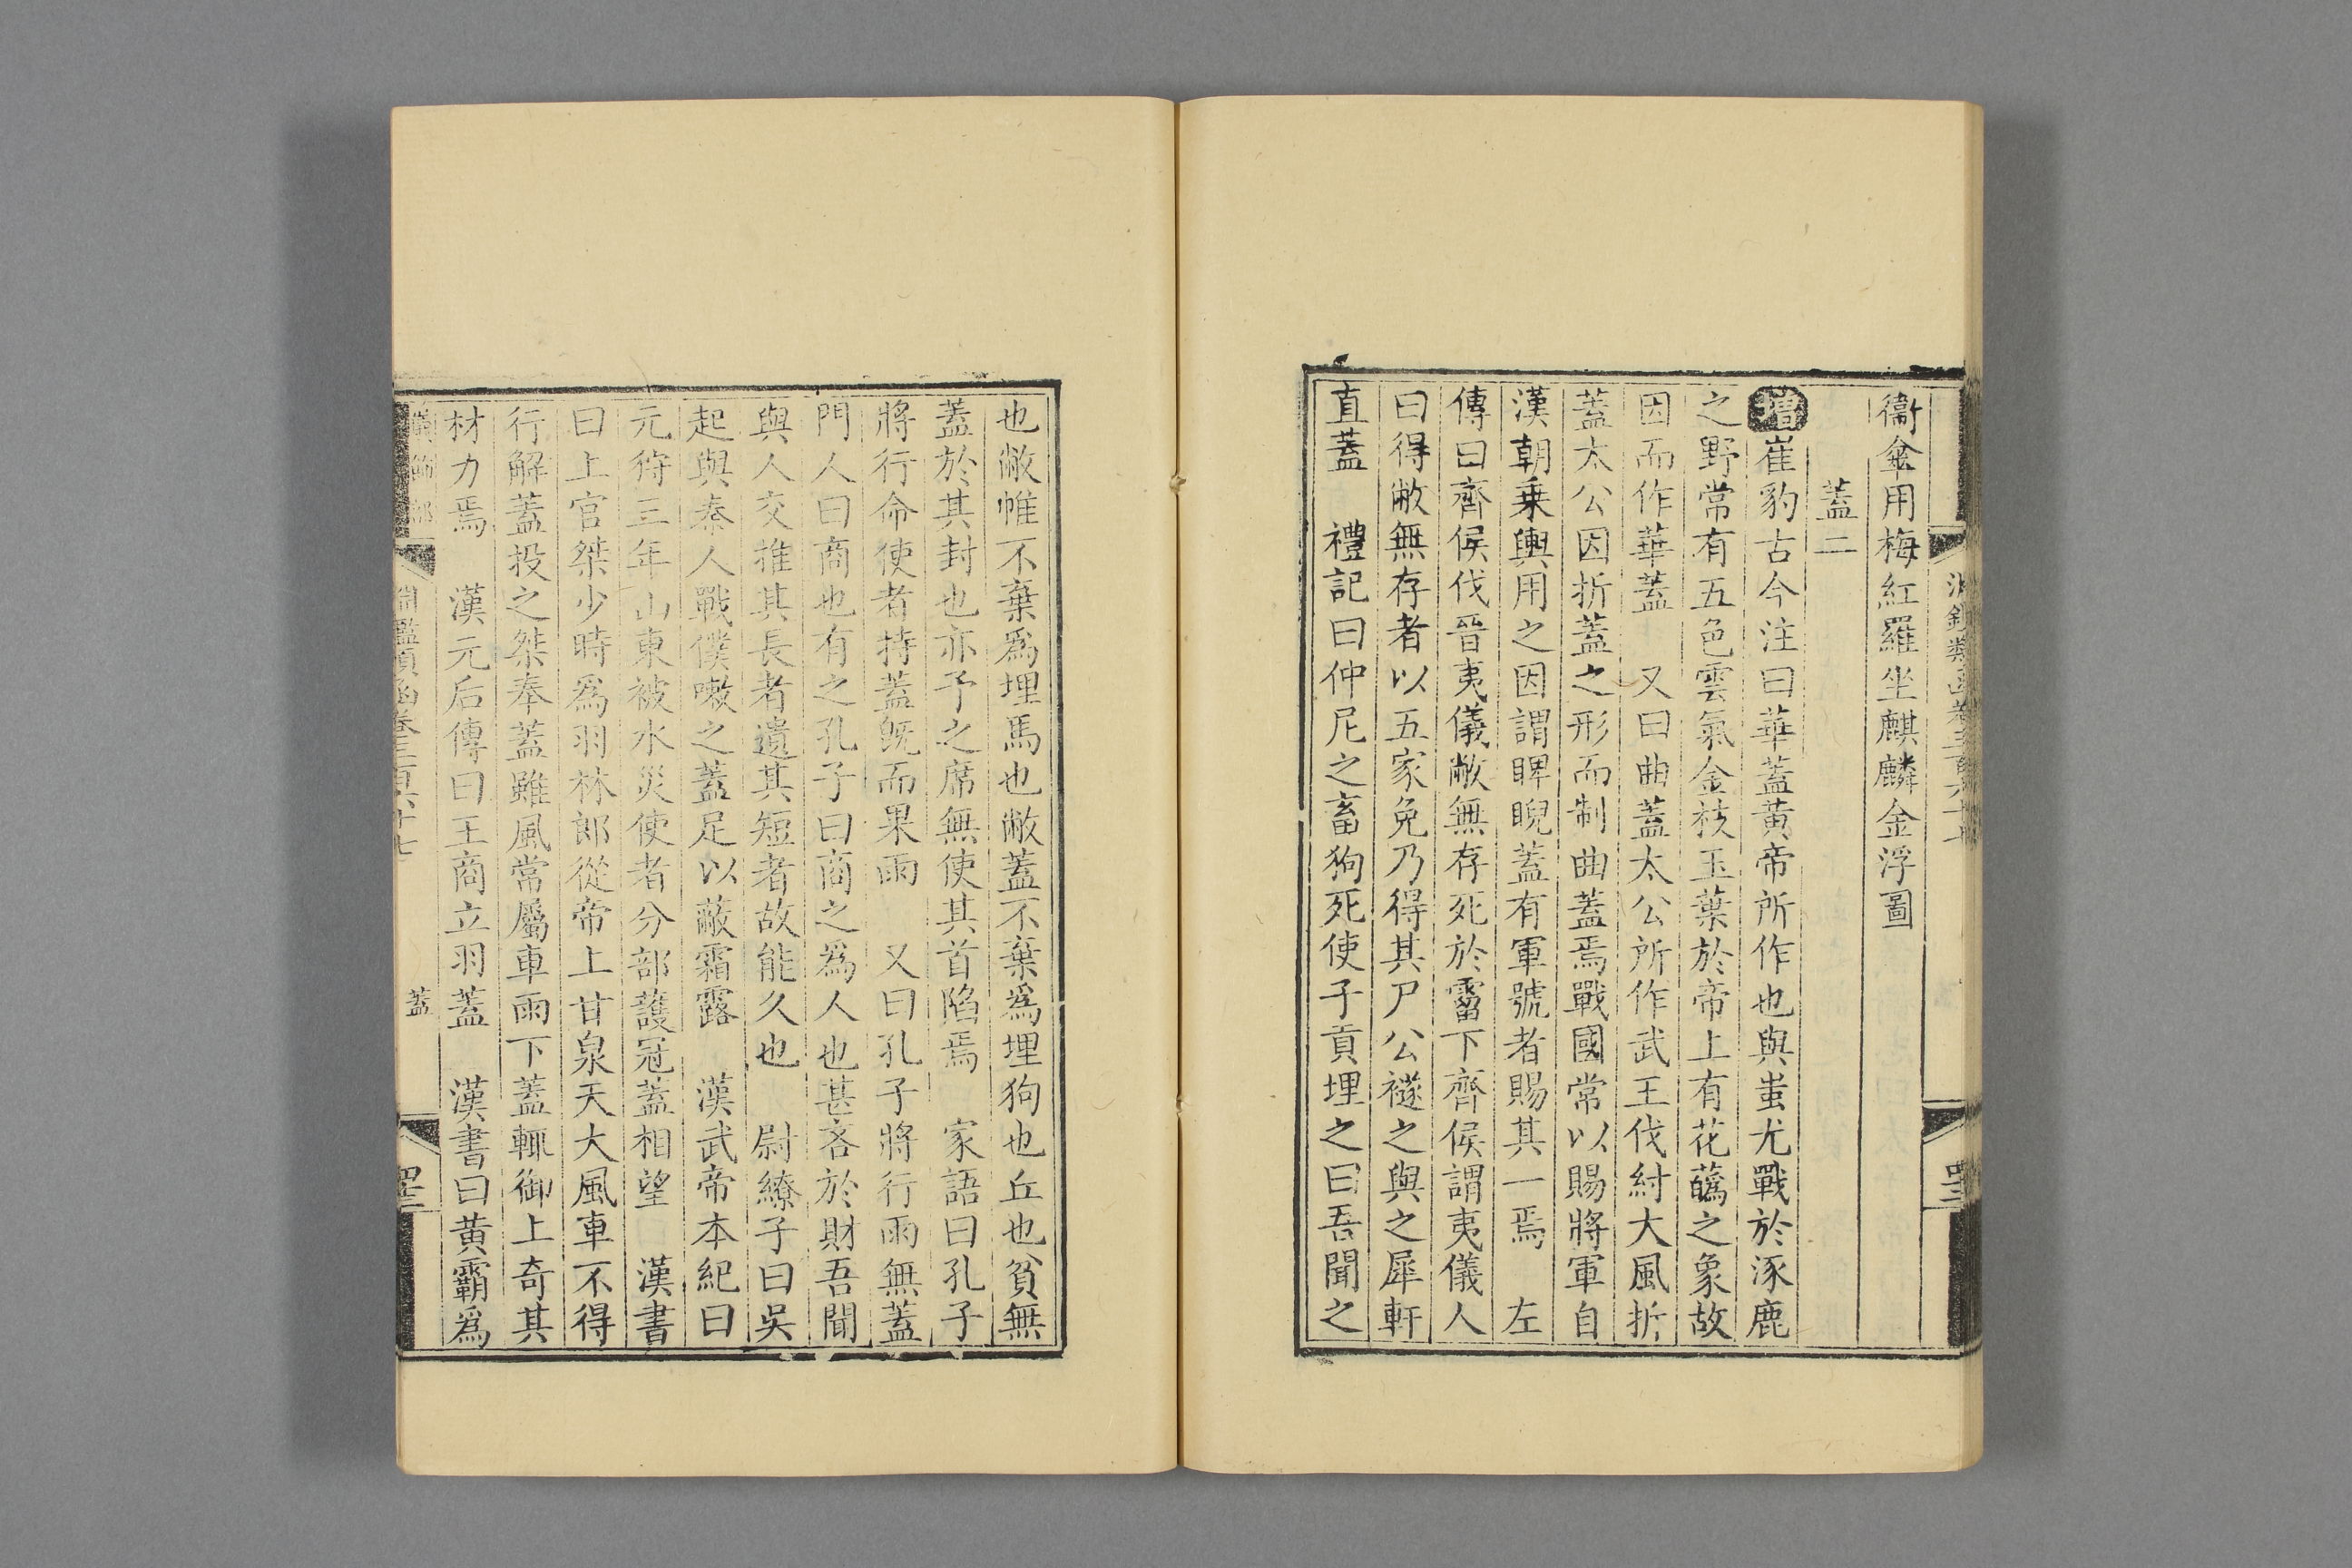 衞傘用梅紅羅坐麒麟金浮圖
蓋二
增崔豹古今注曰華蓋黃帝所作也與蚩尤戰於涿鹿
之野常有五色雲氣金枝玉葉於帝上有花蘤之象故
因而作華蓋　又曰曲蓋太公所作武王伐紂大風折
蓋太公因折蓋之形而制曲蓋焉戰國常以賜將軍自
漢朝乗輿用之因謂睥睨蓋有軍號者賜其一焉　左
傳曰齊侯伐晉夷儀敝無存死於霤下齊侯謂夷儀人
曰得敝無存者以五家免乃得其尸公襚之與之犀軒
直蓋　禮記曰仲尼之畜狗死使子貢埋之曰吾聞之
也敝帷不棄爲埋馬也敝蓋不棄爲埋狗也丘也貧無
蓋於其封也亦予之席無使其首陷焉　家語曰孔子
將行命使者持蓋旣而果雨　又曰孔子將行雨無蓋
門人曰商也有之孔子曰商之爲人也甚吝於財吾聞
與人交推其長者遺其短者故能久也　尉繚子曰吳
起與秦人戰僕嗽之蓋足以蔽霜露　漢武帝本紀曰
元狩三年山東被水災使者分部護冠蓋相望　漢書
曰上官桀少時爲羽林郎從帝上甘泉天大風車不得
行解蓋投之桀奉蓋雖風常屬車雨下蓋輒御上奇其
材力焉　漢元后傳曰王商立羽蓋　漢書曰黄霸爲
淵鑑類函卷三百六十七
蓋